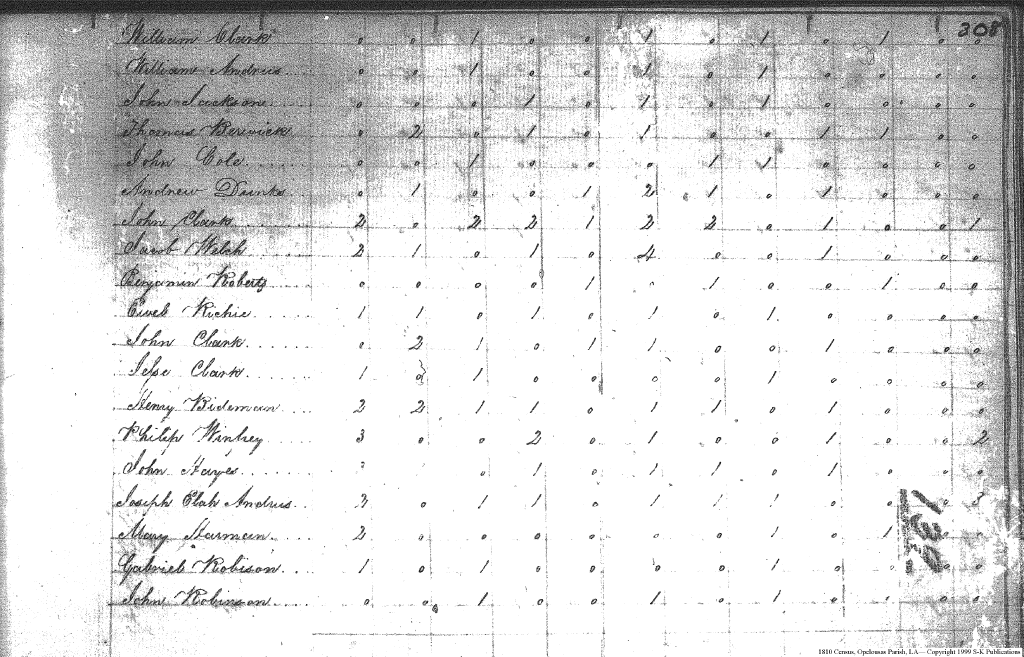 308
William Clark 0 0 1 0 0 1 0 1 0 1 0 0
William Andrus 0 0 1 0 0 1 0 1 0 0 0 0
John Jackson 0 0 0 1 0 1 0 1 0 0 0 0
Thomas Berwick 0 2 0 1 0 1 0 0 1 1 0 0
John Cole 0 0 1 0 0 0 1 1 0 0 0 0
Andrew 0 1 0 0 1 2 1 0 1 0 0 0
John Clark 2 0 2 2 1 2 2 0 1 0 0 1
Jacob Welch 2 1 0 1 0 4 0 0 1 0 0 0
Benjamin Roberts 0 0 0 0 1 0 1 0 0 1 0 0
Richie 1 1 0 1 0 1 0 1 0 0 0 0
John Clark 0 2 1 0 1 1 0 0 1 0 0 0
Jesse Clark 1 0 1 0 0 0 0 1 0 0 0 0
Henry Bideman 2 2 1 1 0 1 1 0 1 0 0 0
Philip Winfrey 3 0 0 2 0 1 0 0 1 0 0 2
John Hayes 0 1 0 1 1 0 1 0 0 0
Joseph Andrus 0 1 1 0 1 1 1 0 0 0 3
Mary Harman 2 0 0 0 0 0 0 1 0 1 0 0
Gabriel Robison 1 0 1 0 0 0 0 1 0 0 0
John Robinson 0 0 1 0 0 1 0 1 0 0 0 0
1810 Census, Opelousas Parish, LA— Copyright 1999 S-K Publications